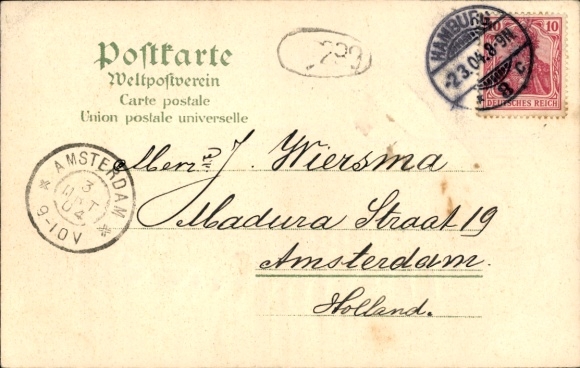 Postkarte
Weltpostverein
Carte postale
Union postale universelle
HAMBURG
2.3.04.8-9N
* 8 c
10 10
DEUTSCHES REICH
AMSTERDAM
3
04
9-10V
J. Wiersma
Madura Straat 19
Amsterdam.
Holland.